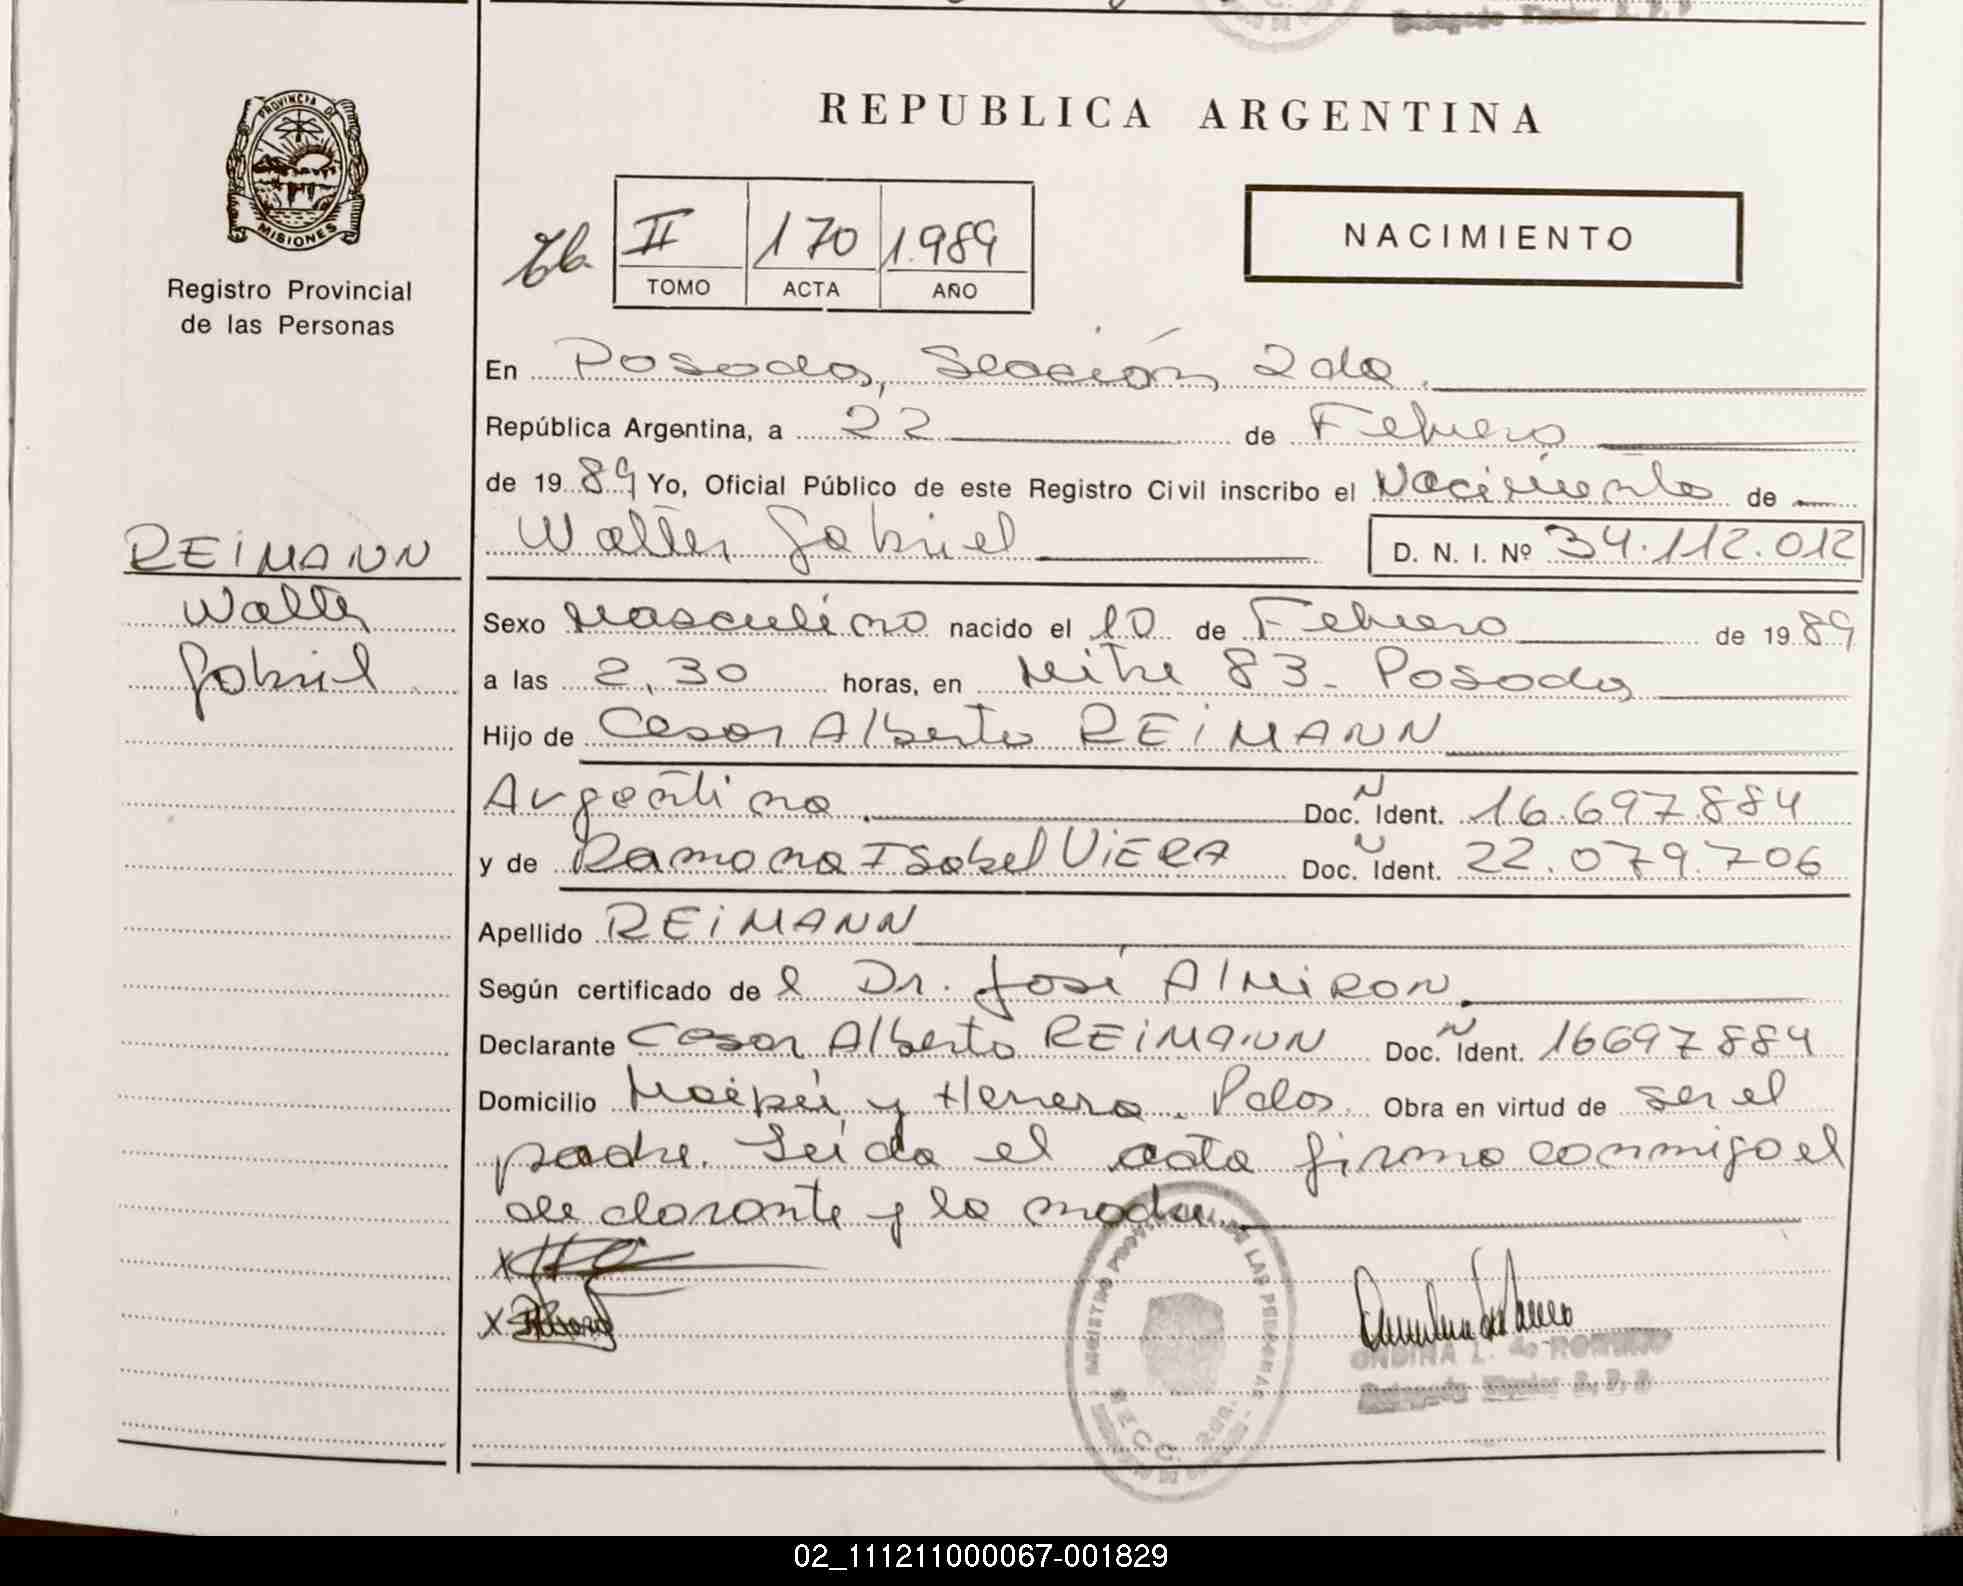 PROVINCIA DE
MISIONES
Registro Provincial
de las Personas
REPUBLICA ARGENTINA
II 170 1.989
TOMO ACTA AÑO
NACIMIENTO
En Posadas, Sección 2da.
República Argentina, a 22 de Febrero
de 1989 Yo, Oficial Público de este Registro Civil inscribo el Nacimiento de
Walter Gabriel D. N. I. Nº 34.112.012
REIMANN
Walter
Gabriel
Sexo Masculino nacido el 10 de Febrero de 1989
a las 2,30 horas, en Mitre 83 - Posadas
Hijo de Cesar Alberto REIMANN
Argentino Doc. N Ident. 16.697.884
y de Ramona Isabel VIERA Doc. N Ident. 22.079.706
Apellido REIMANN
Según certificado de l Dr. José AlMIRON
Declarante Cesar Alberto REIMANN Doc. N Ident. 16697884
Domicilio Maipú y Herrera. Pdas. Obra en virtud de ser el
padre. Leída el acta firma conmigo el
declarante y la madre
X
X
REGISTRO PROV. DE LAS PERSONAS
ONDINA L. de ROMERO
02_111211000067-001829